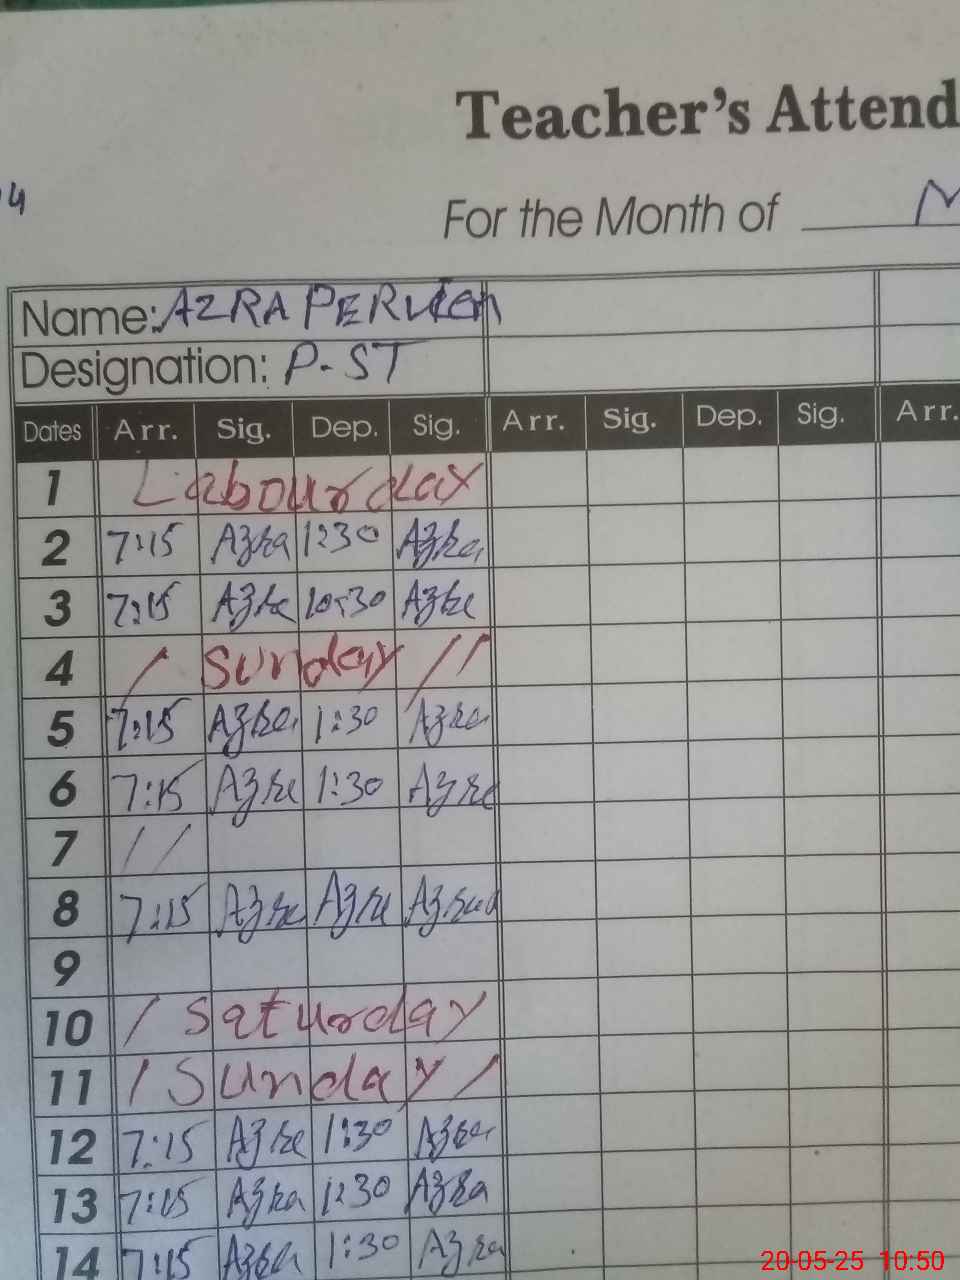 Teacher's Attend
4
For the Month of M
Name: AZRA PERVEEN
Designation: P-ST
Dates Arr. Sig. Dep. Sig. Arr. Sig. Dep. Sig. Arr.
1 Labour day
2 7:15 Azra 1:30 Azra
3 7:15 Azra 10:30 Azra
4 / Sunday //
5 7:15 Azra 1:30 Azra
6 7:15 Azra 1:30 Azra
7 //
8 7:15 Azra Azra Azra
9
10 / Saturday
11 / Sunday /
12 7:15 Azra 1:30 Azra
13 7:15 Azra 1:30 Azra
14 7:15 Azra 1:30 Azra
20-05-25 10:50